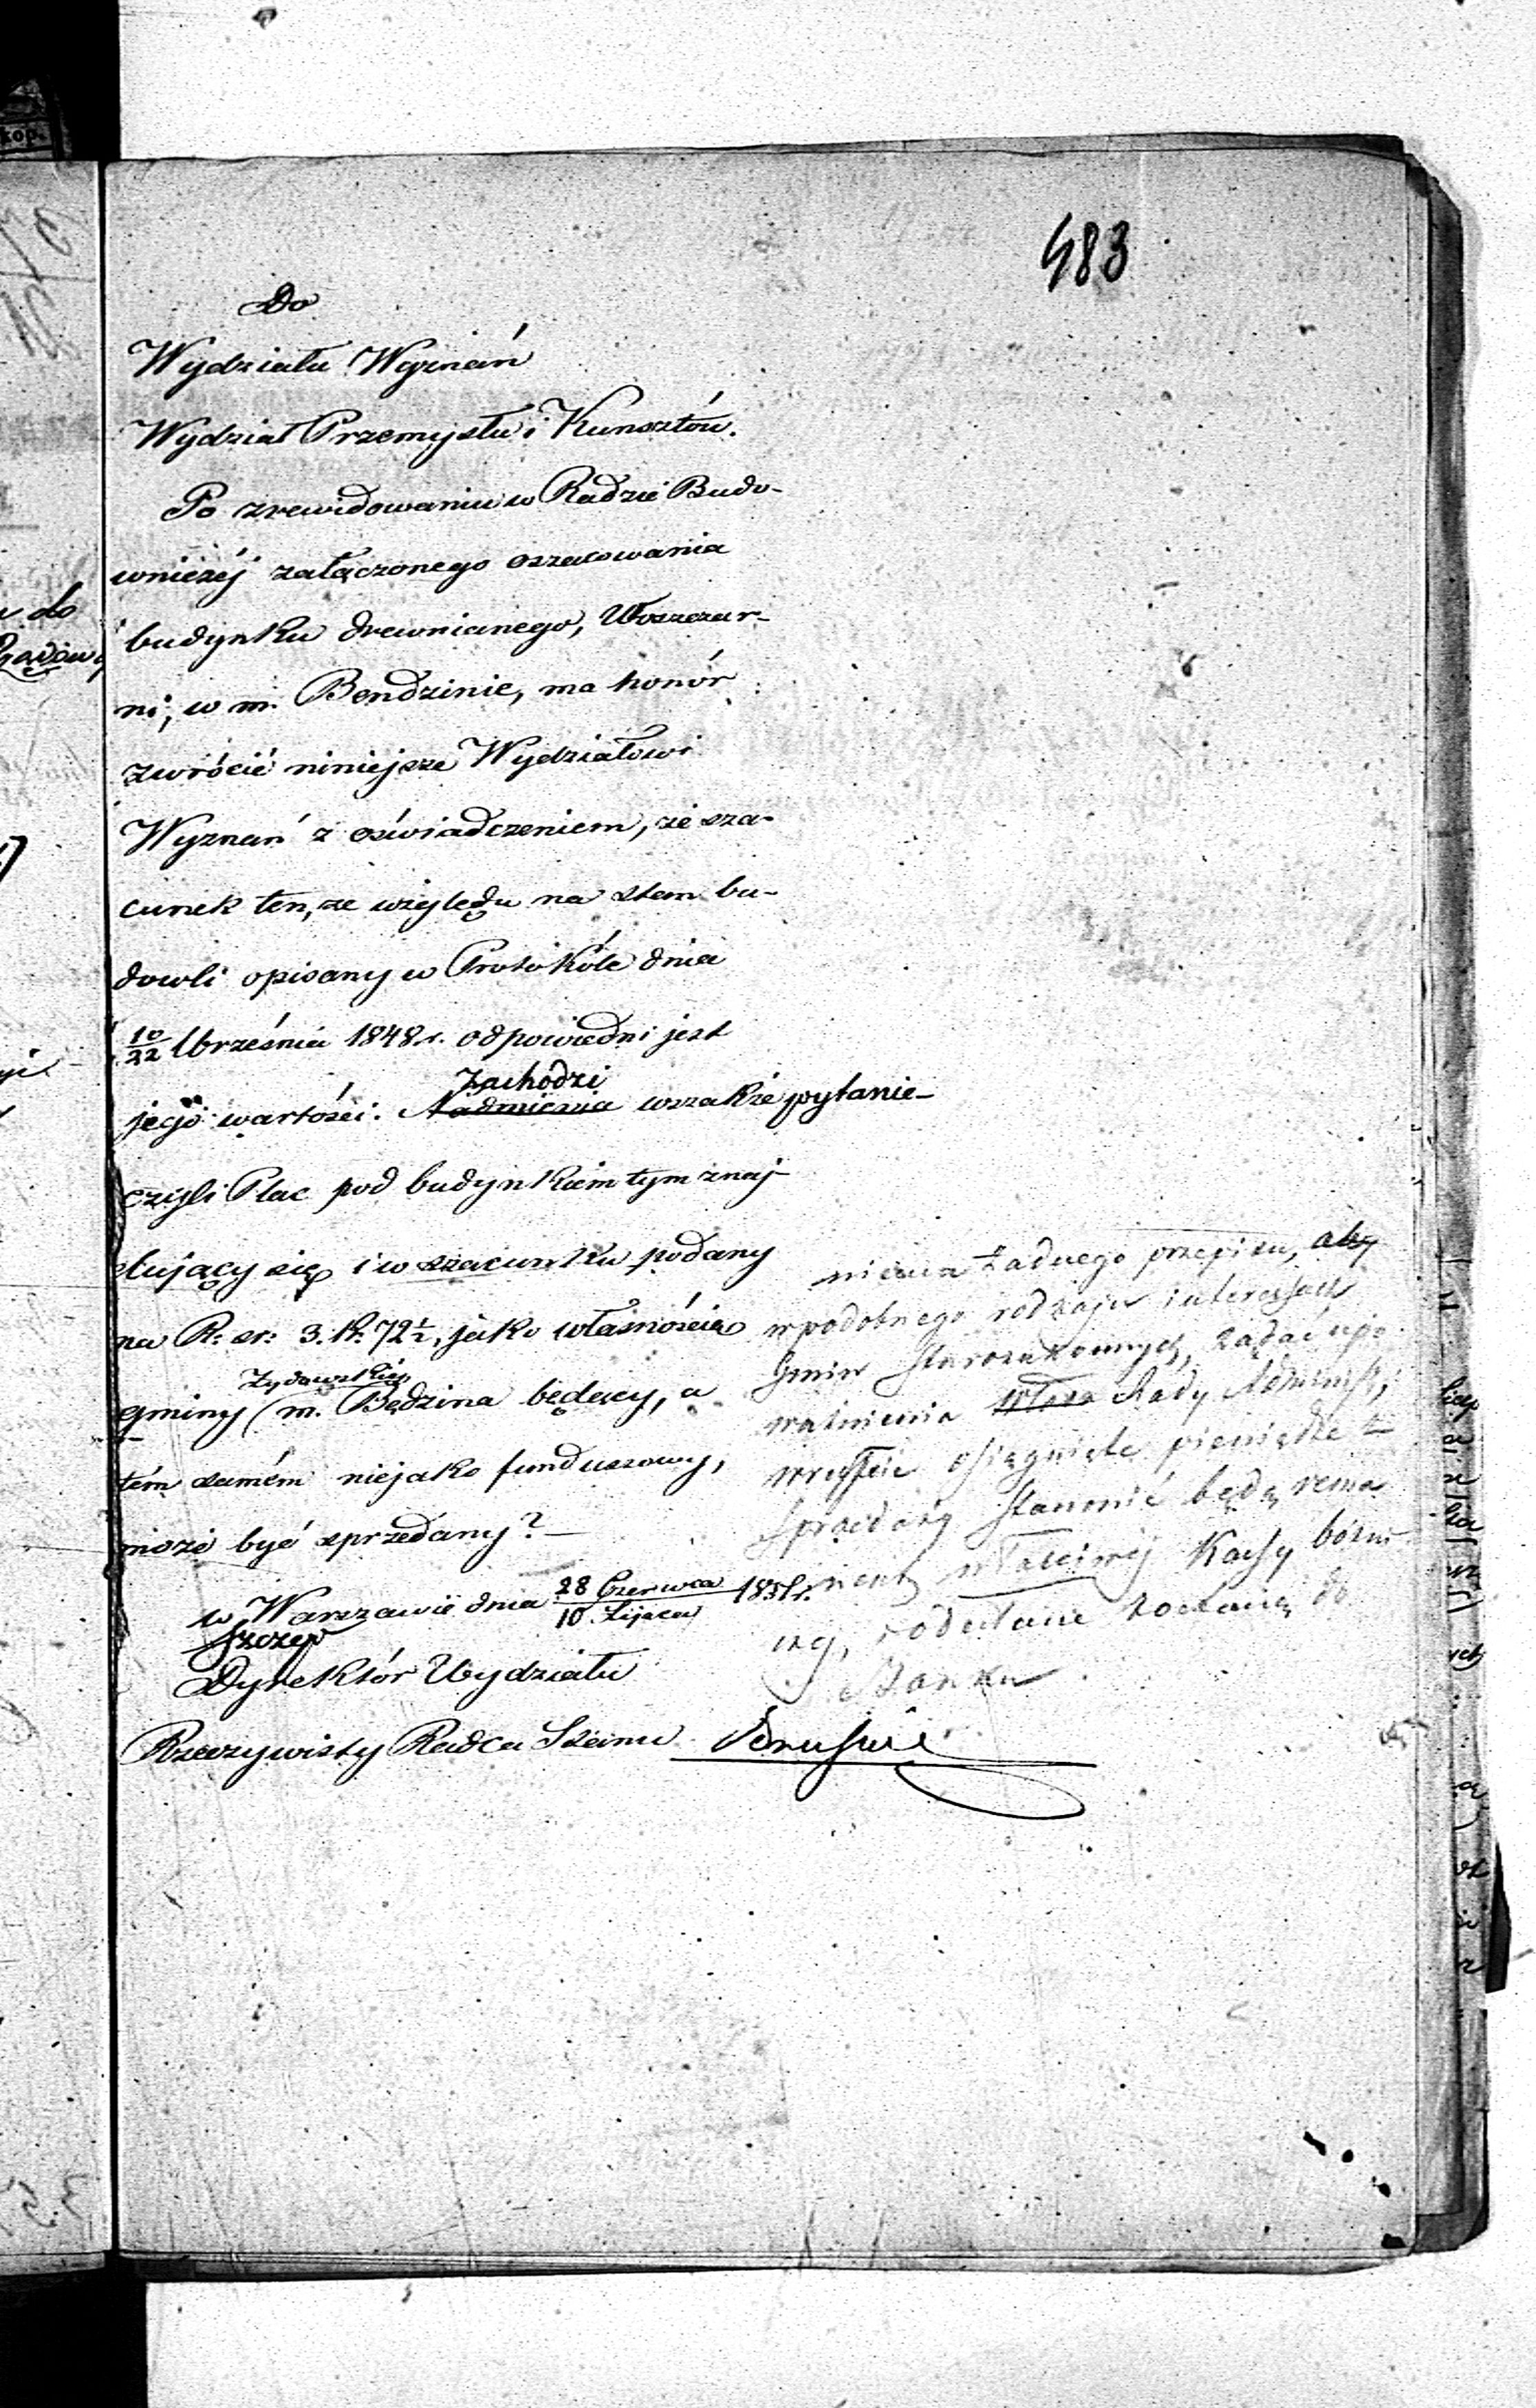 483
Do
Wydziału Wyznań
Wydział Przemysłu i Kunsztów.
Po zrewidowaniu w Radzie Budo-
wniczéj załączonego oszacowania
budynku drewnianego, Woszczar-
ni, w m. Bendzinie, ma honór
zwrócić niniejsze Wydziałowi
Wyznań z oświadczeniem, że sza-
cunek ten, ze względu na stan bu-
dowli opisany w Protokóle dnia
10/22 Września 1848 r. odpowiedni jest
Zachodzi
jego wartości. Nadmienia wszakże pytanie-
czyli Plac pod budynkiem tym znaj-
dujący się i w szacunku podany
na R: sr: 3. k: 72½, jako własnością
Żydowskiéj
gminy m. Będzina będący, a
tém samém niejako funduszowy,
może być sprzedany?
w Warszawie dnia 28 Czerwca/10 Lipca 1851 r.
Dyrektór Wydziału
Rzeczywisty Radca Stanu
niema żadnego przepisu, aby
w podobnego rodzaju interessach
Gmin Starozakonnych, żądać upo
ważnienia Rady Administ;
wreszcie osiągnięte pieniądze z
sprzedaży stanowić będą rema
nent właściwej Kassy bóżni
czej, i odesłane zostaną do
Banku
do
kop.